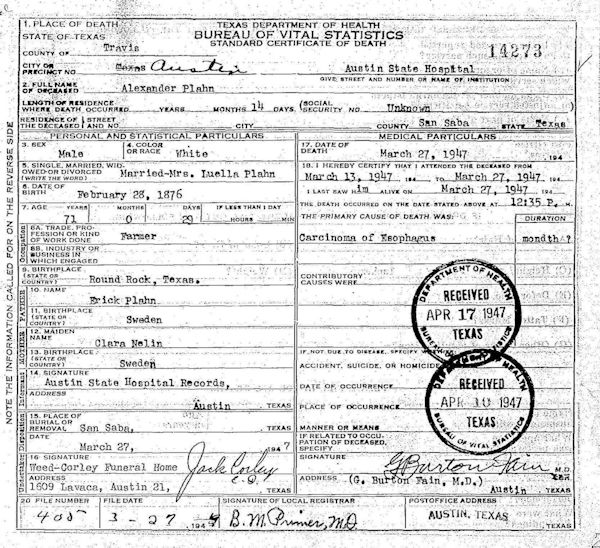 TEXAS DEPARTMENT OF HEALTH
BUREAU OF VITAL STATISTICS
STANDARD CERTIFICATE OF DEATH
14273
NOTE THE INFORMATION CALLED FOR ON THE REVERSE SIDE
1. PLACE OF DEATH
STATE OF TEXAS
COUNTY OF Travis
CITY OR PRECINCT NO. Texas Austin Austin State Hospital
GIVE STREET AND NUMBER OR NAME OF INSTITUTION
2. FULL NAME OF DECEASED Alexander Plahn
LENGTH OF RESIDENCE WHERE DEATH OCCURRED YEARS MONTHS 14 DAYS (SOCIAL SECURITY NO. Unknown )
RESIDENCE OF THE DECEASED STREET AND NO. CITY COUNTY San Saba STATE Texas
PERSONAL AND STATISTICAL PARTICULARS
3. SEX Male
4. COLOR OR RACE White
5. SINGLE, MARRIED, WIDOWED OR DIVORCED (WRITE THE WORD) Married-Mrs. Luella Plahn
6. DATE OF BIRTH February 28, 1876
7. AGE YEARS MONTHS DAYS IF LESS THAN 1 DAY
71 0 29 HOURS MIN
Occupation
8A. TRADE, PROFESSION OR KIND OF WORK DONE Farmer
8B. INDUSTRY OR BUSINESS IN WHICH ENGAGED
9. BIRTHPLACE (STATE OR COUNTRY) Round Rock, Texas.
FATHER
10. NAME
Erick Plahn
11. BIRTHPLACE (STATE OR COUNTRY) Sweden
MOTHER
12. MAIDEN NAME Clara Nelin
13. BIRTHPLACE (STATE OR COUNTRY) Sweden
Informant
14. SIGNATURE
Austin State Hospital Records,
ADDRESS
Austin TEXAS
Undertaker Disposition
15. PLACE OF BURIAL OR REMOVAL San Saba, TEXAS
DATE
March 27, 1947
16 SIGNATURE
Weed-Corley Funeral Home Jack Corley
ADDRESS
1609 Lavaca, Austin 21, TEXAS
MEDICAL PARTICULARS
17. DATE OF DEATH March 27, 1947 194
18. I HEREBY CERTIFY THAT I ATTENDED THE DECEASED FROM
March 13, 1947 194 TO March 27, 1947. 194
I LAST SAW him ALIVE ON March 27, 1947 194
THE DEATH OCCURRED ON THE DATE STATED ABOVE AT 12:35 P. M
THE PRIMARY CAUSE OF DEATH WAS: DURATION
Carcinoma of Esophagus
CONTRIBUTORY CAUSES WERE
DEPARTMENT OF HEALTH
RECEIVED
APR 17 1947
TEXAS
BUREAU OF VITAL STATISTICS
IF NOT DUE TO DISEASE, SPECIFY WHETHER
ACCIDENT, SUICIDE, OR HOMICIDE
DATE OF OCCURRENCE
PLACE OF OCCURRENCE
MANNER OR MEANS
DEPARTMENT OF HEALTH
RECEIVED
APR 10 1947
TEXAS
BUREAU OF VITAL STATISTICS
IF RELATED TO OCCUPATION OF DECEASED, SPECIFY
SIGNATURE
G Burton Fain M.D.
ADDRESS (G. Burton Fain, M.D.)
Austin TEXAS
20 FILE NUMBER FILE DATE SIGNATURE OF LOCAL REGISTRAR POSTOFFICE ADDRESS
405 3-27 1947 B.M. Primer, M.D. AUSTIN, TEXAS